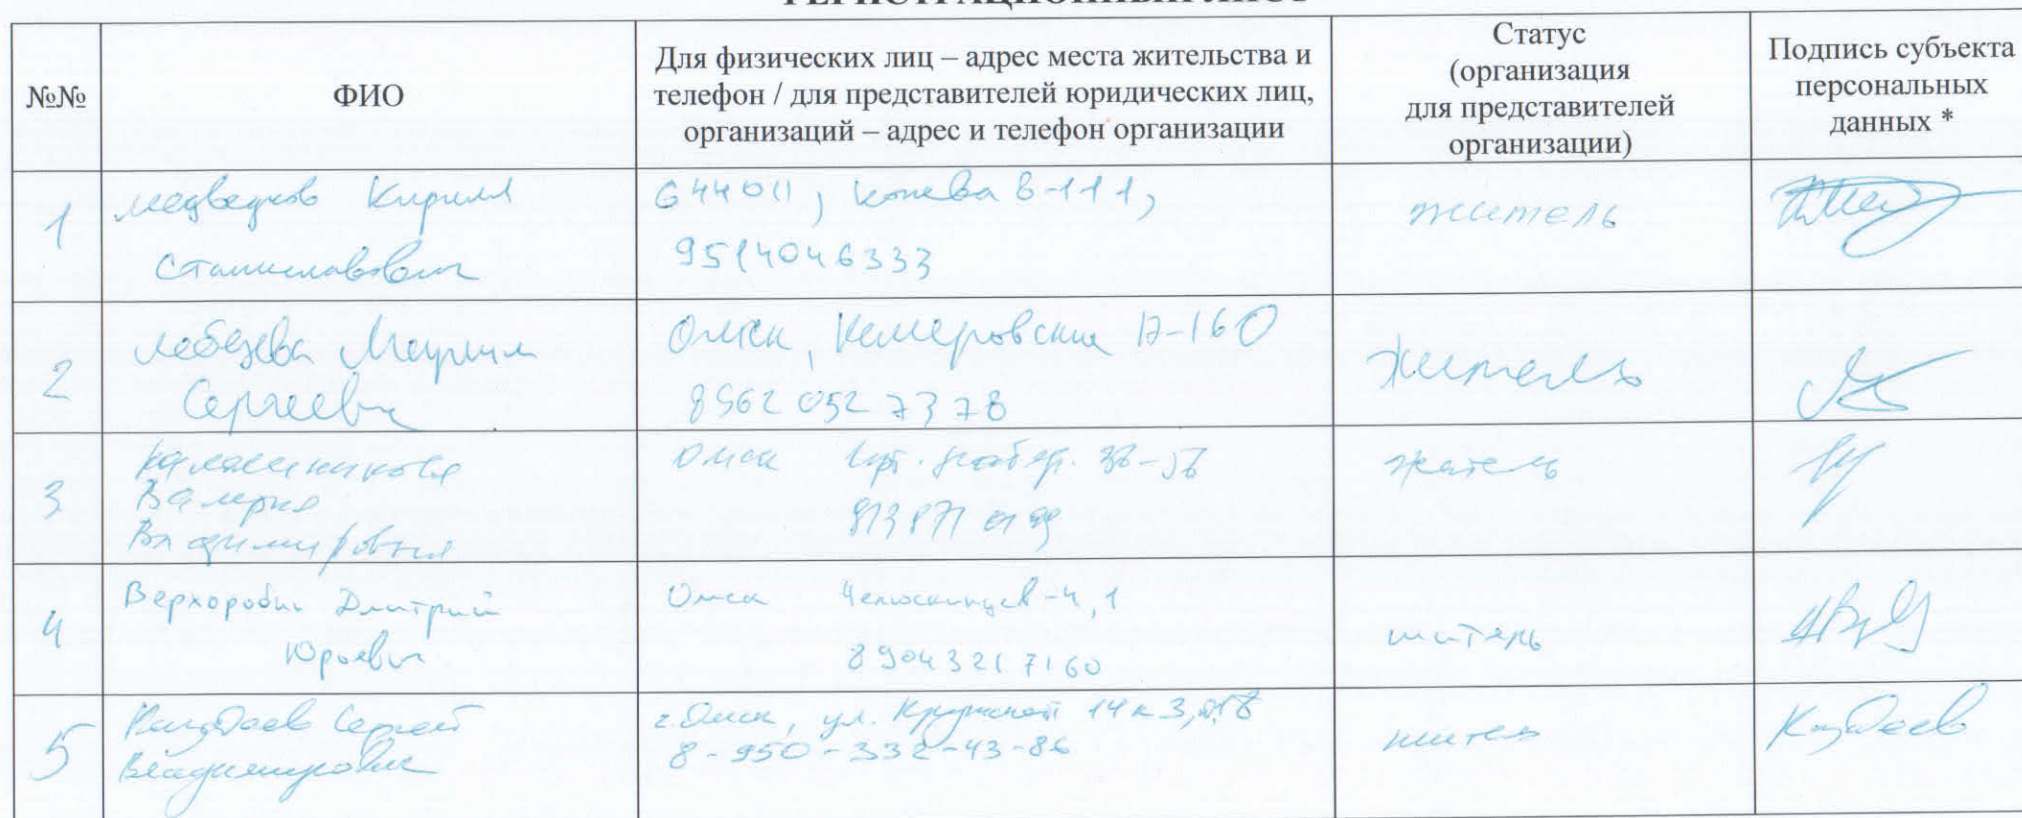 РЕГИСТРАЦИОННЫЙ ЛИСТ
№№
ФИО
Для физических лиц – адрес места жительства и
телефон / для представителей юридических лиц,
организаций – адрес и телефон организации
Статус
(организация
для представителей
организации)
Подпись субъекта
персональных
данных *
1
Медведков Кирилл
Станиславович
644011, Конева 8-111,
9514046333
житель
2
Лебедева Марина
Сергеевна
Омск, Кемеровская 17-160
8962 052 7378
Житель
3
Калашникова
Валерия
Владимировна
Омск
житель
4
Верхоробин Дмитрий
Юрьевич
Омск Челюскинцев-4, 1
89043217160
житель
5
Сергей
Владимирович
г. Омск, ул.
14 к 3,
8-950-332-43-86
житель